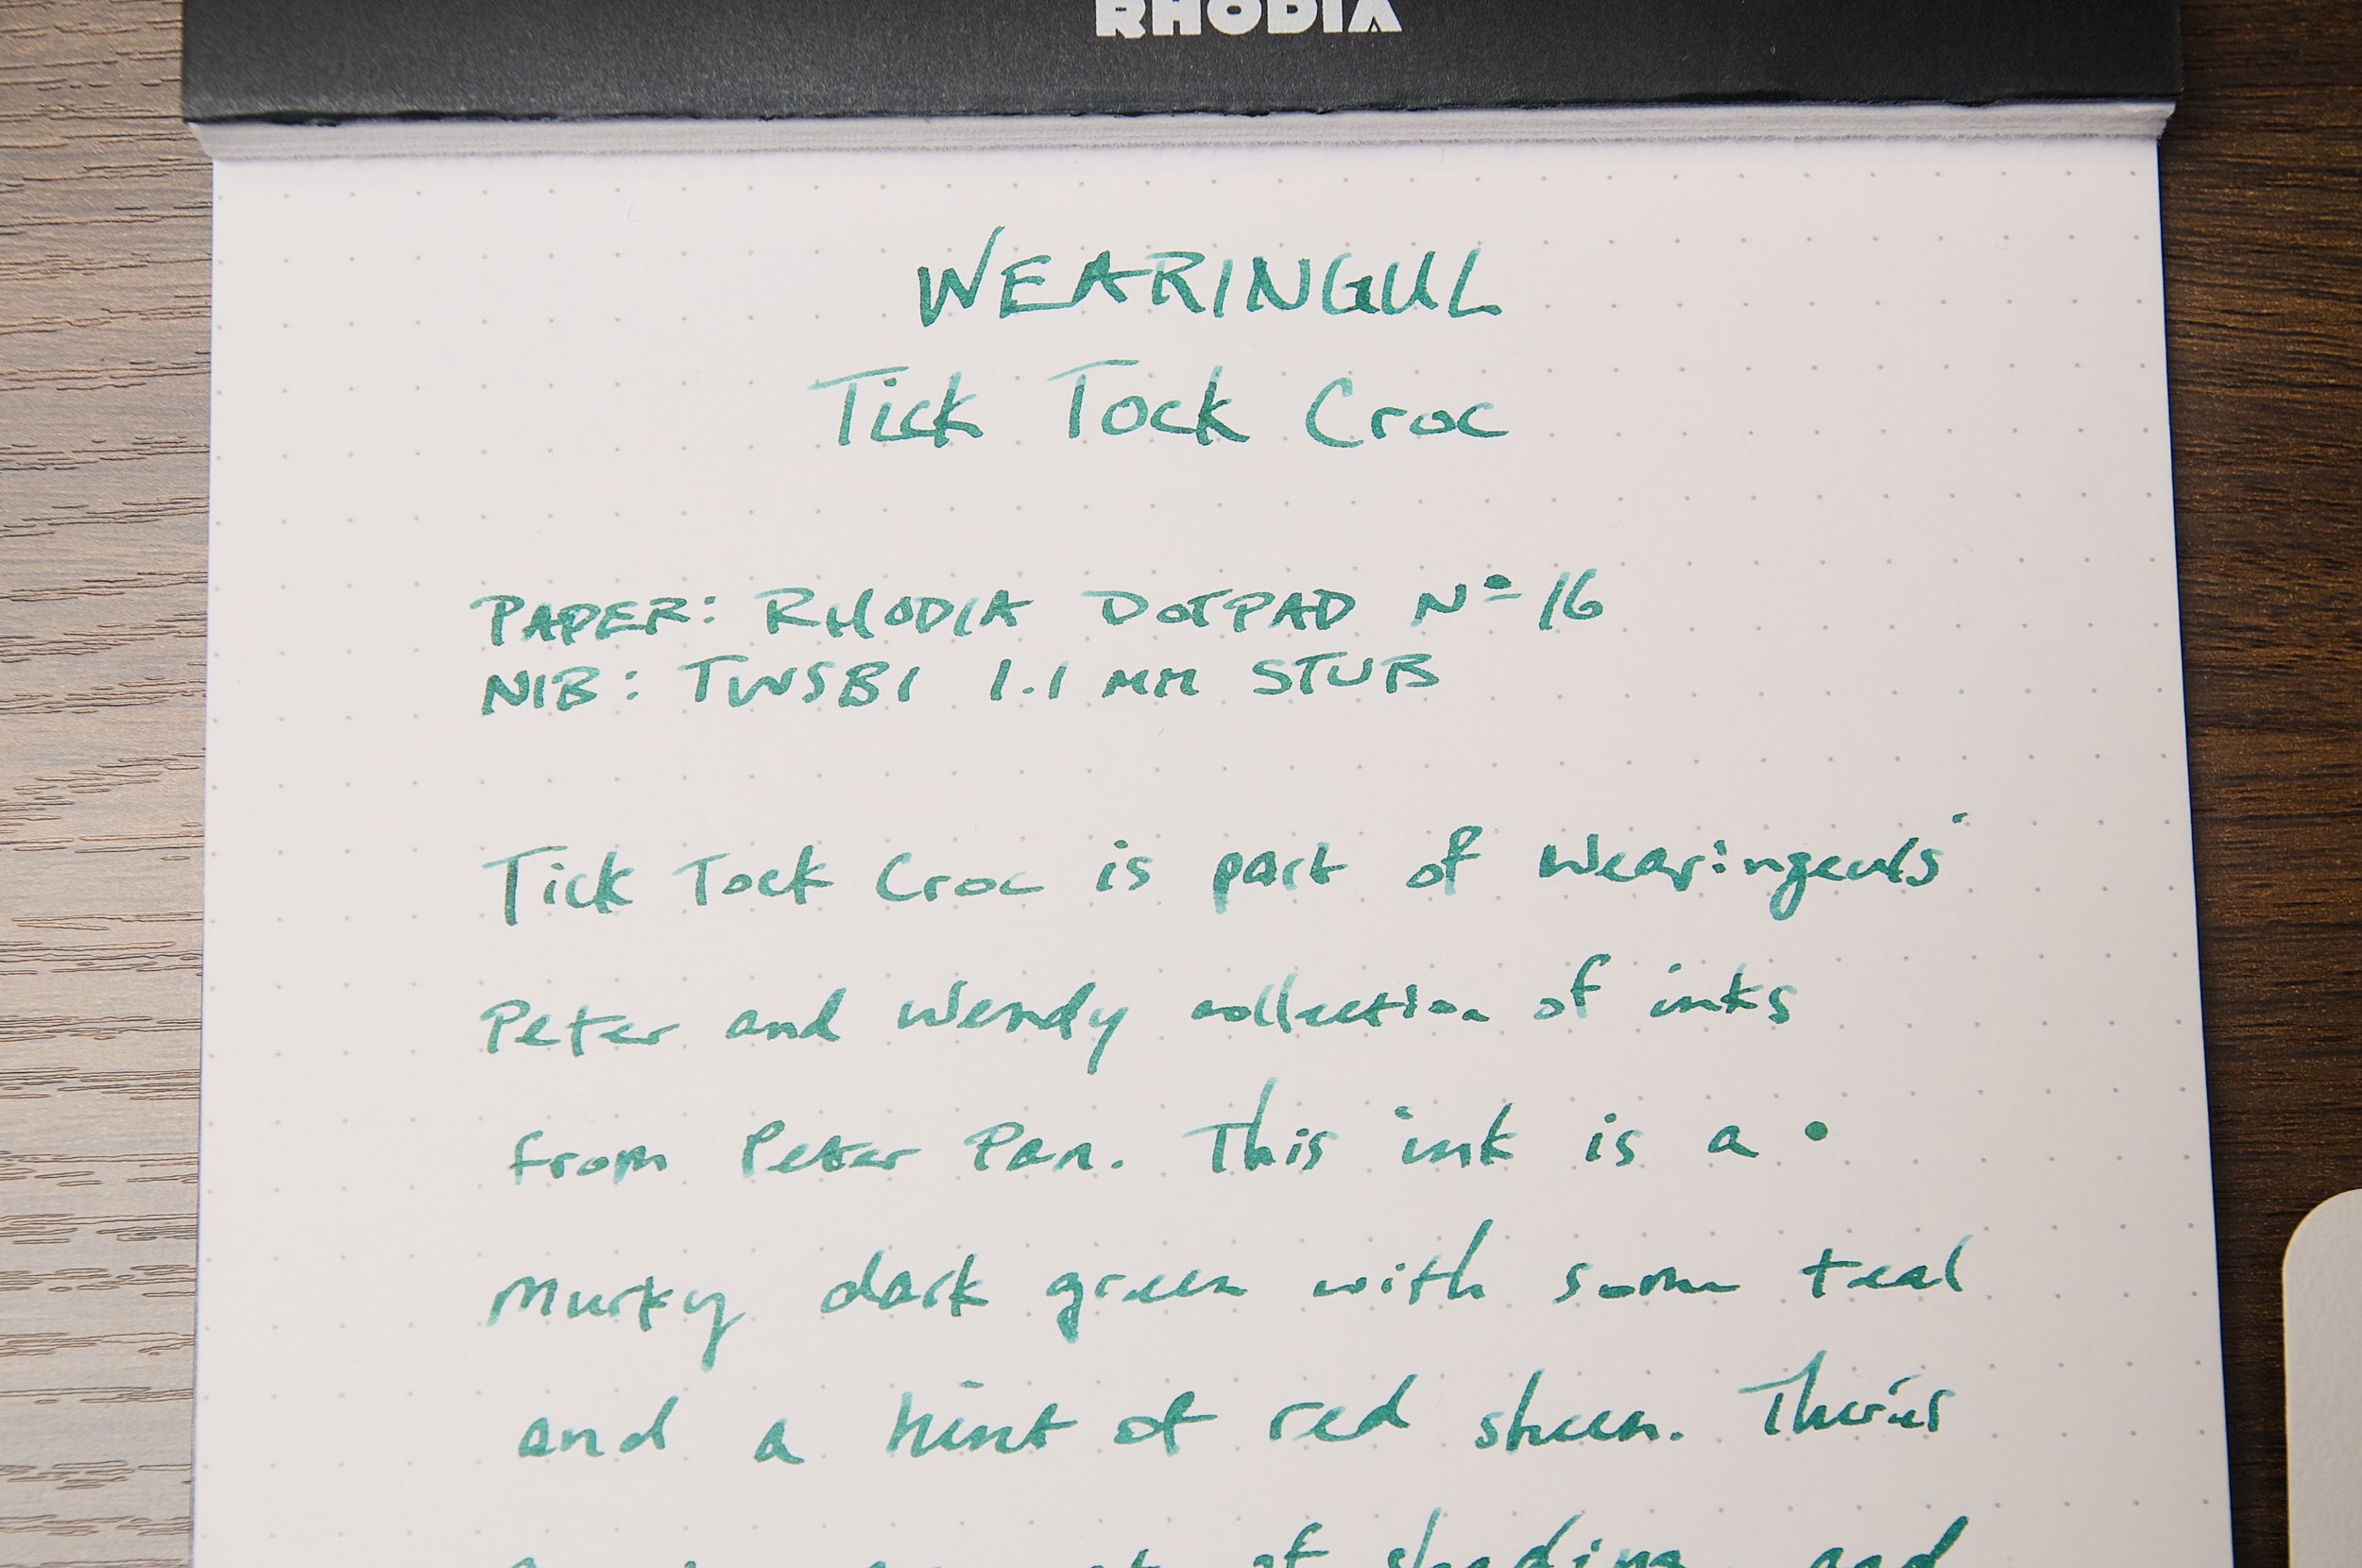 RHODIA
WEARINGUL
Tick Tock Croc
PAPER: RHODIA DOTPAD Nº 16
NIB: TWSBI 1.1 mm STUB
Tick Tock Croc is part of Wearingeuls'
Peter and Wendy collection of inks
from Peter Pan. This ink is a
murky dark green with some teal
and a hint of red sheen. There's
of shading, and